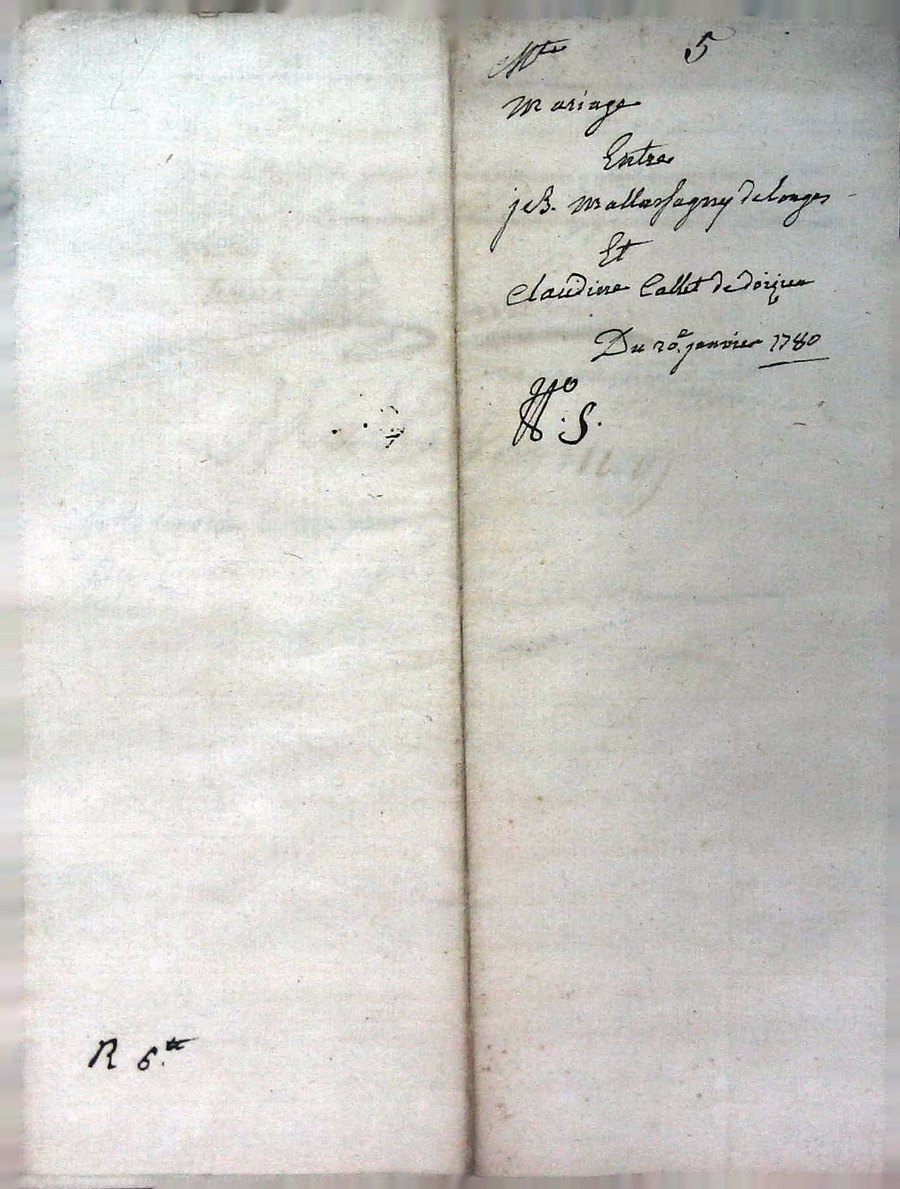 5
Mariage
Entre
j B. Mallassagny de longes
Et
Claudine Callet de doizieu
Du 20e. janvier 1780
S.
R 6.tt